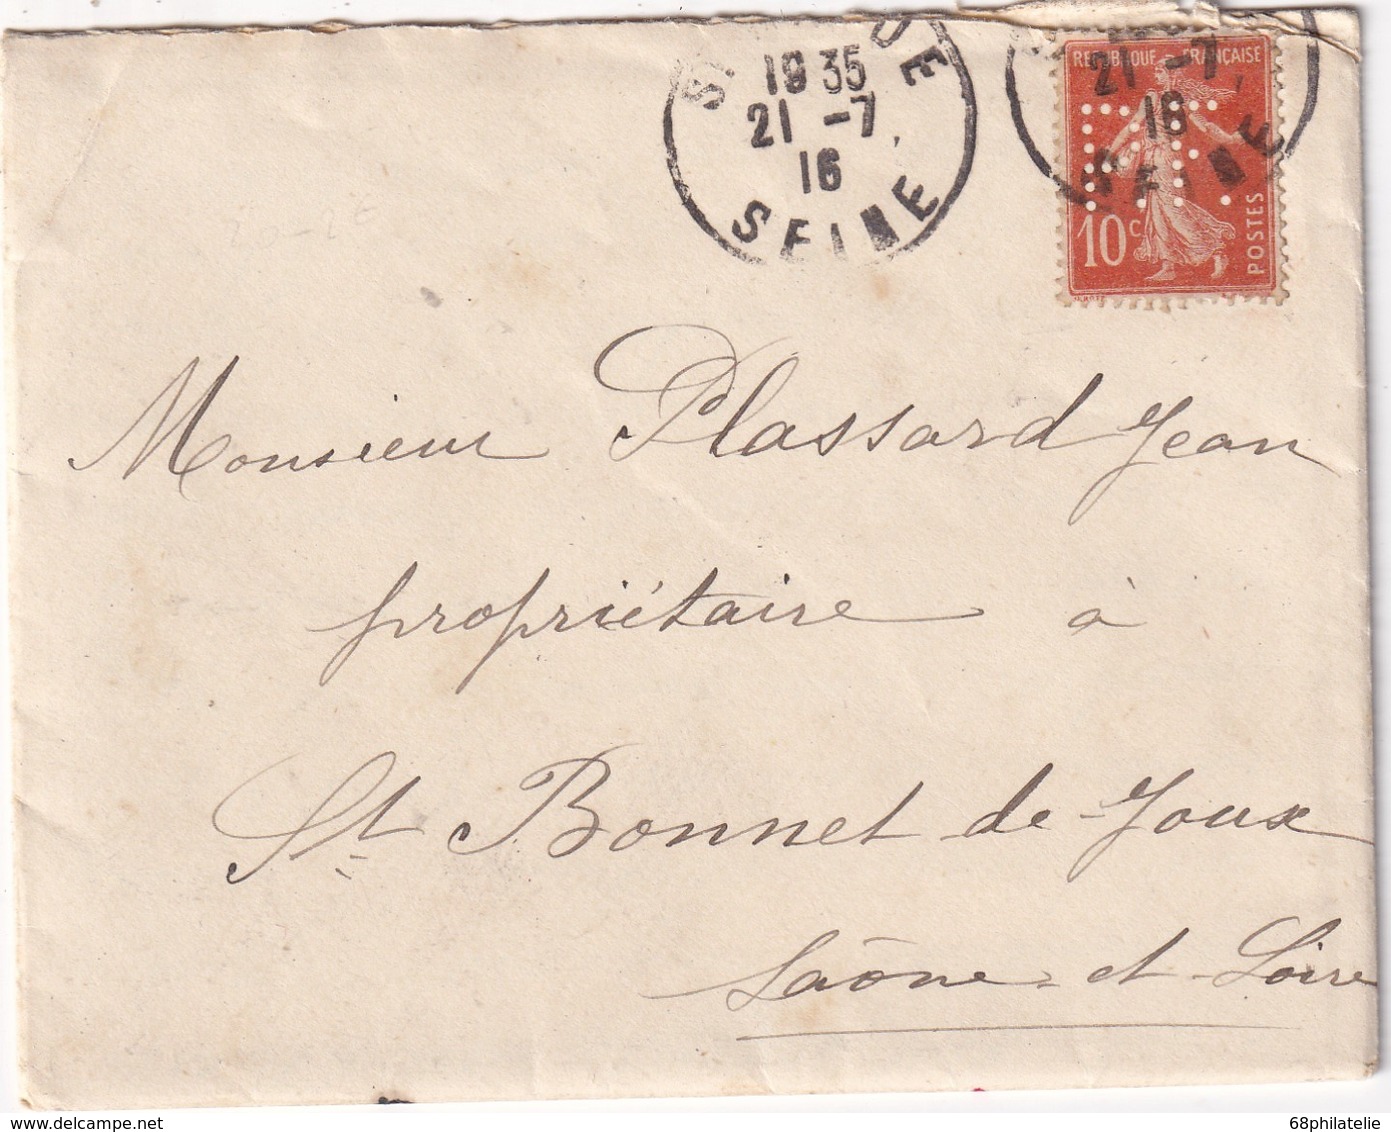 19 35
21 -7
16
SEINE
REPUBLIQUE FRANÇAISE
21 -7
16
SEINE
10c
POSTES
Monsieur Plassard Jean
propriétaire à
St Bonnet de Joux
Saône et Loire
www.delcampe.net
68philatelie